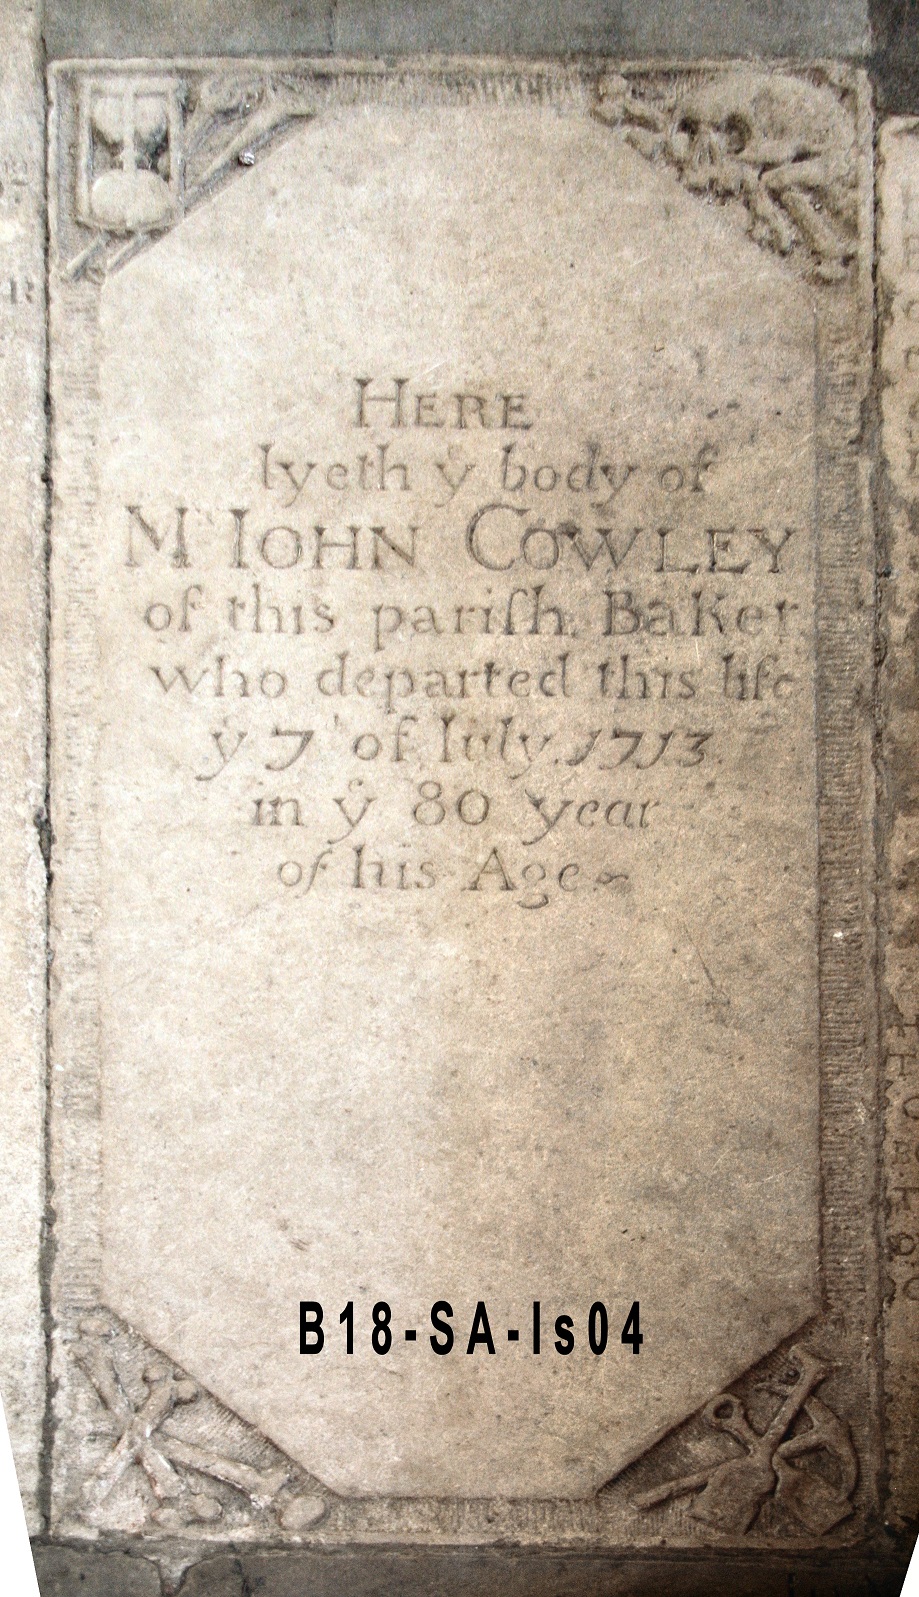 HERE
lyeth yͤ body of
Mʳ IOHN COWLEY
of this pariſh Baker
who departed this life
yͤ 7 of Iuly 1713
in yͤ 80 year
of his Age
B18-SA-Is04